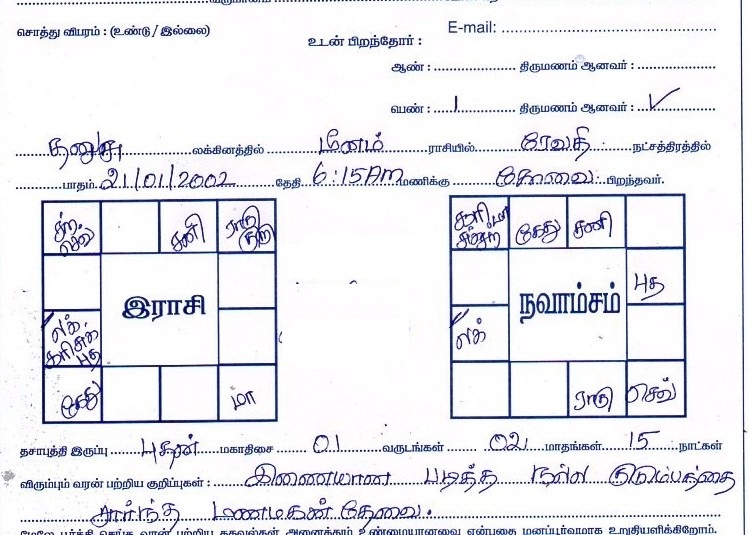 சொத்து விபரம் : (உண்டு / இல்லை)
E-mail:
உடன் பிறந்தோர் :
ஆண் : திருமணம் ஆனவர் :
பெண் : 1 திருமணம் ஆனவர் : ✓
தனுசு லக்கினத்தில் மீனம் ராசியில் ரேவதி நட்சத்திரத்தில்
பாதம் 21/01/2002 தேதி 6:15AM மணிக்கு கோவை பிறந்தவர்.
சந் செவ் சனி ராகு குரு
இராசி
லக் சூரி சுக் புத
கேது மா
கேது சனி
நவாம்சம்
புத
லக்
ராகு செவ்
தசாபுத்தி இருப்பு புதன் மகாதிசை 01 வருடங்கள் 02 மாதங்கள் 15 நாட்கள்
விரும்பும் வரன் பற்றிய குறிப்புகள் : இணையான படித்த நல்ல குடும்பத்தை
சார்ந்த மணமகன் தேவை.
மேலே பூர்த்தி செய்த வரன் பற்றிய தகவல்கள் அனைத்தும் உண்மையானவை என்பதை மனப்பூர்வமாக உறுதியளிக்கிறோம்.